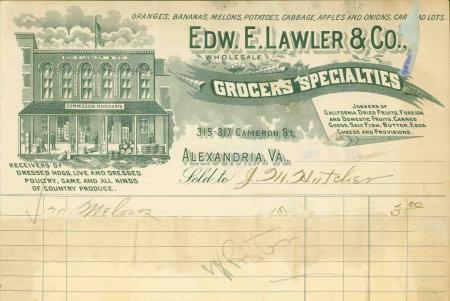 ORANGES, BANANAS, MELONS, POTATOES, CABBAGE, APPLES AND ONIONS, CAR LOAD LOTS.
EDW. E. LAWLER & CO.,
WHOLESALE
GROCERS SPECIALTIES
EDW. E. LAWLER & CO.
COMMISSION MERCHANTS
JOBBERS OF
CALIFORNIA DRIED FRUITS, FOREIGN
AND DOMESTIC FRUITS, CANNED
GOODS, SALT FISH, BUTTER, EGGS,
CHEESE AND PROVISIONS.
315-317 CAMERON ST.
ALEXANDRIA, VA.
RECEIVERS OF
DRESSED HOGS, LIVE AND DRESSED
POULTRY, GAME AND ALL KINDS
OF COUNTRY PRODUCE.
Sold to J. M. Hutcher
Melons 15 3 00